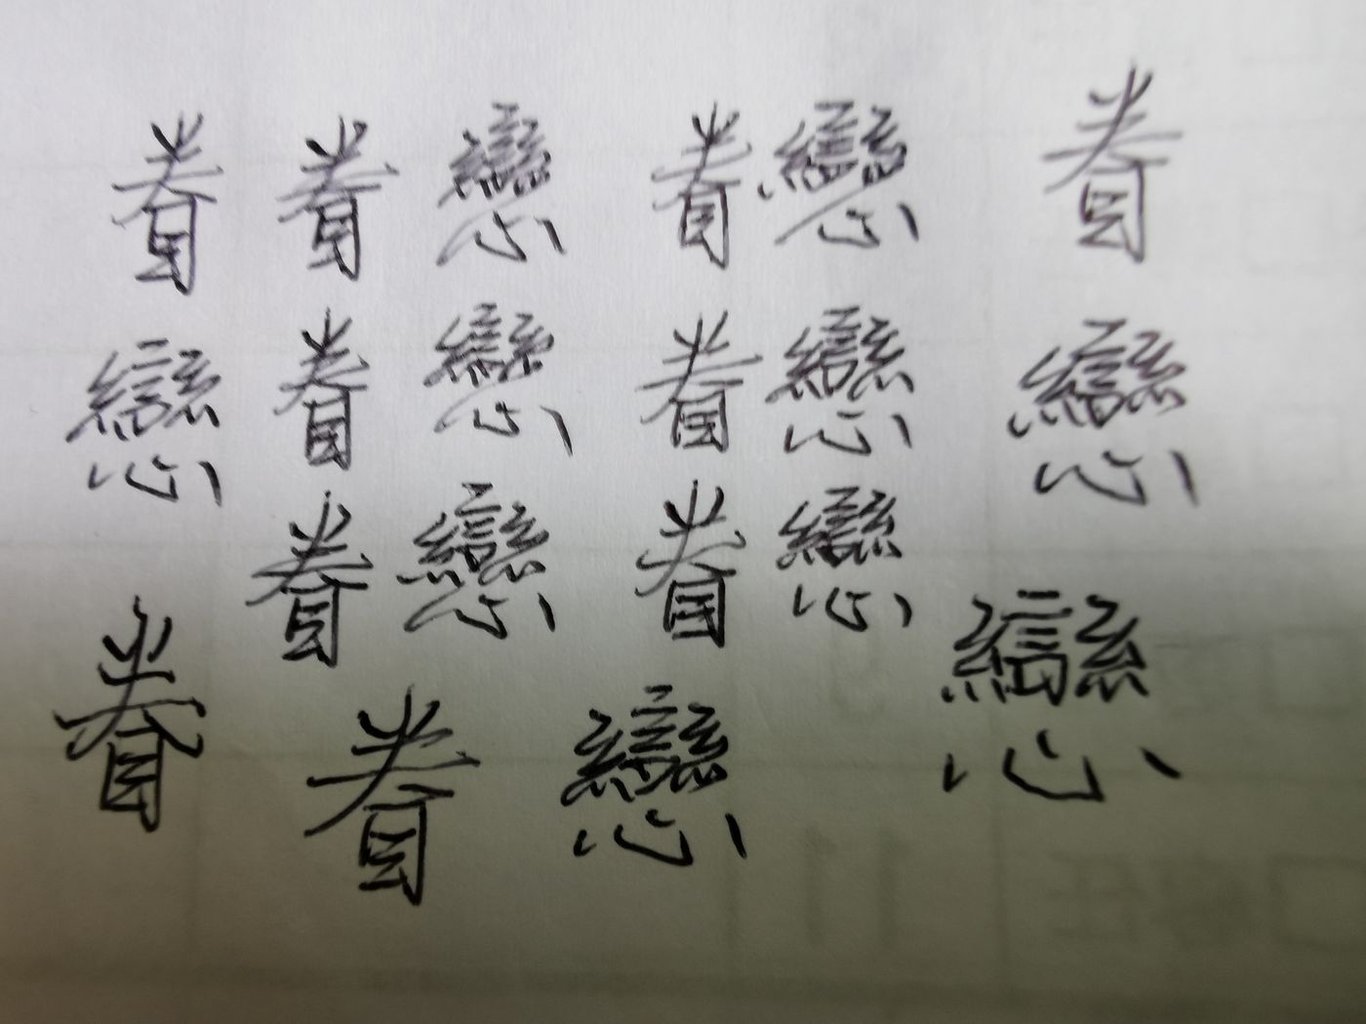 眷 眷戀 眷戀 眷
戀 眷戀 眷戀 戀
眷戀 眷戀
眷 眷戀 戀